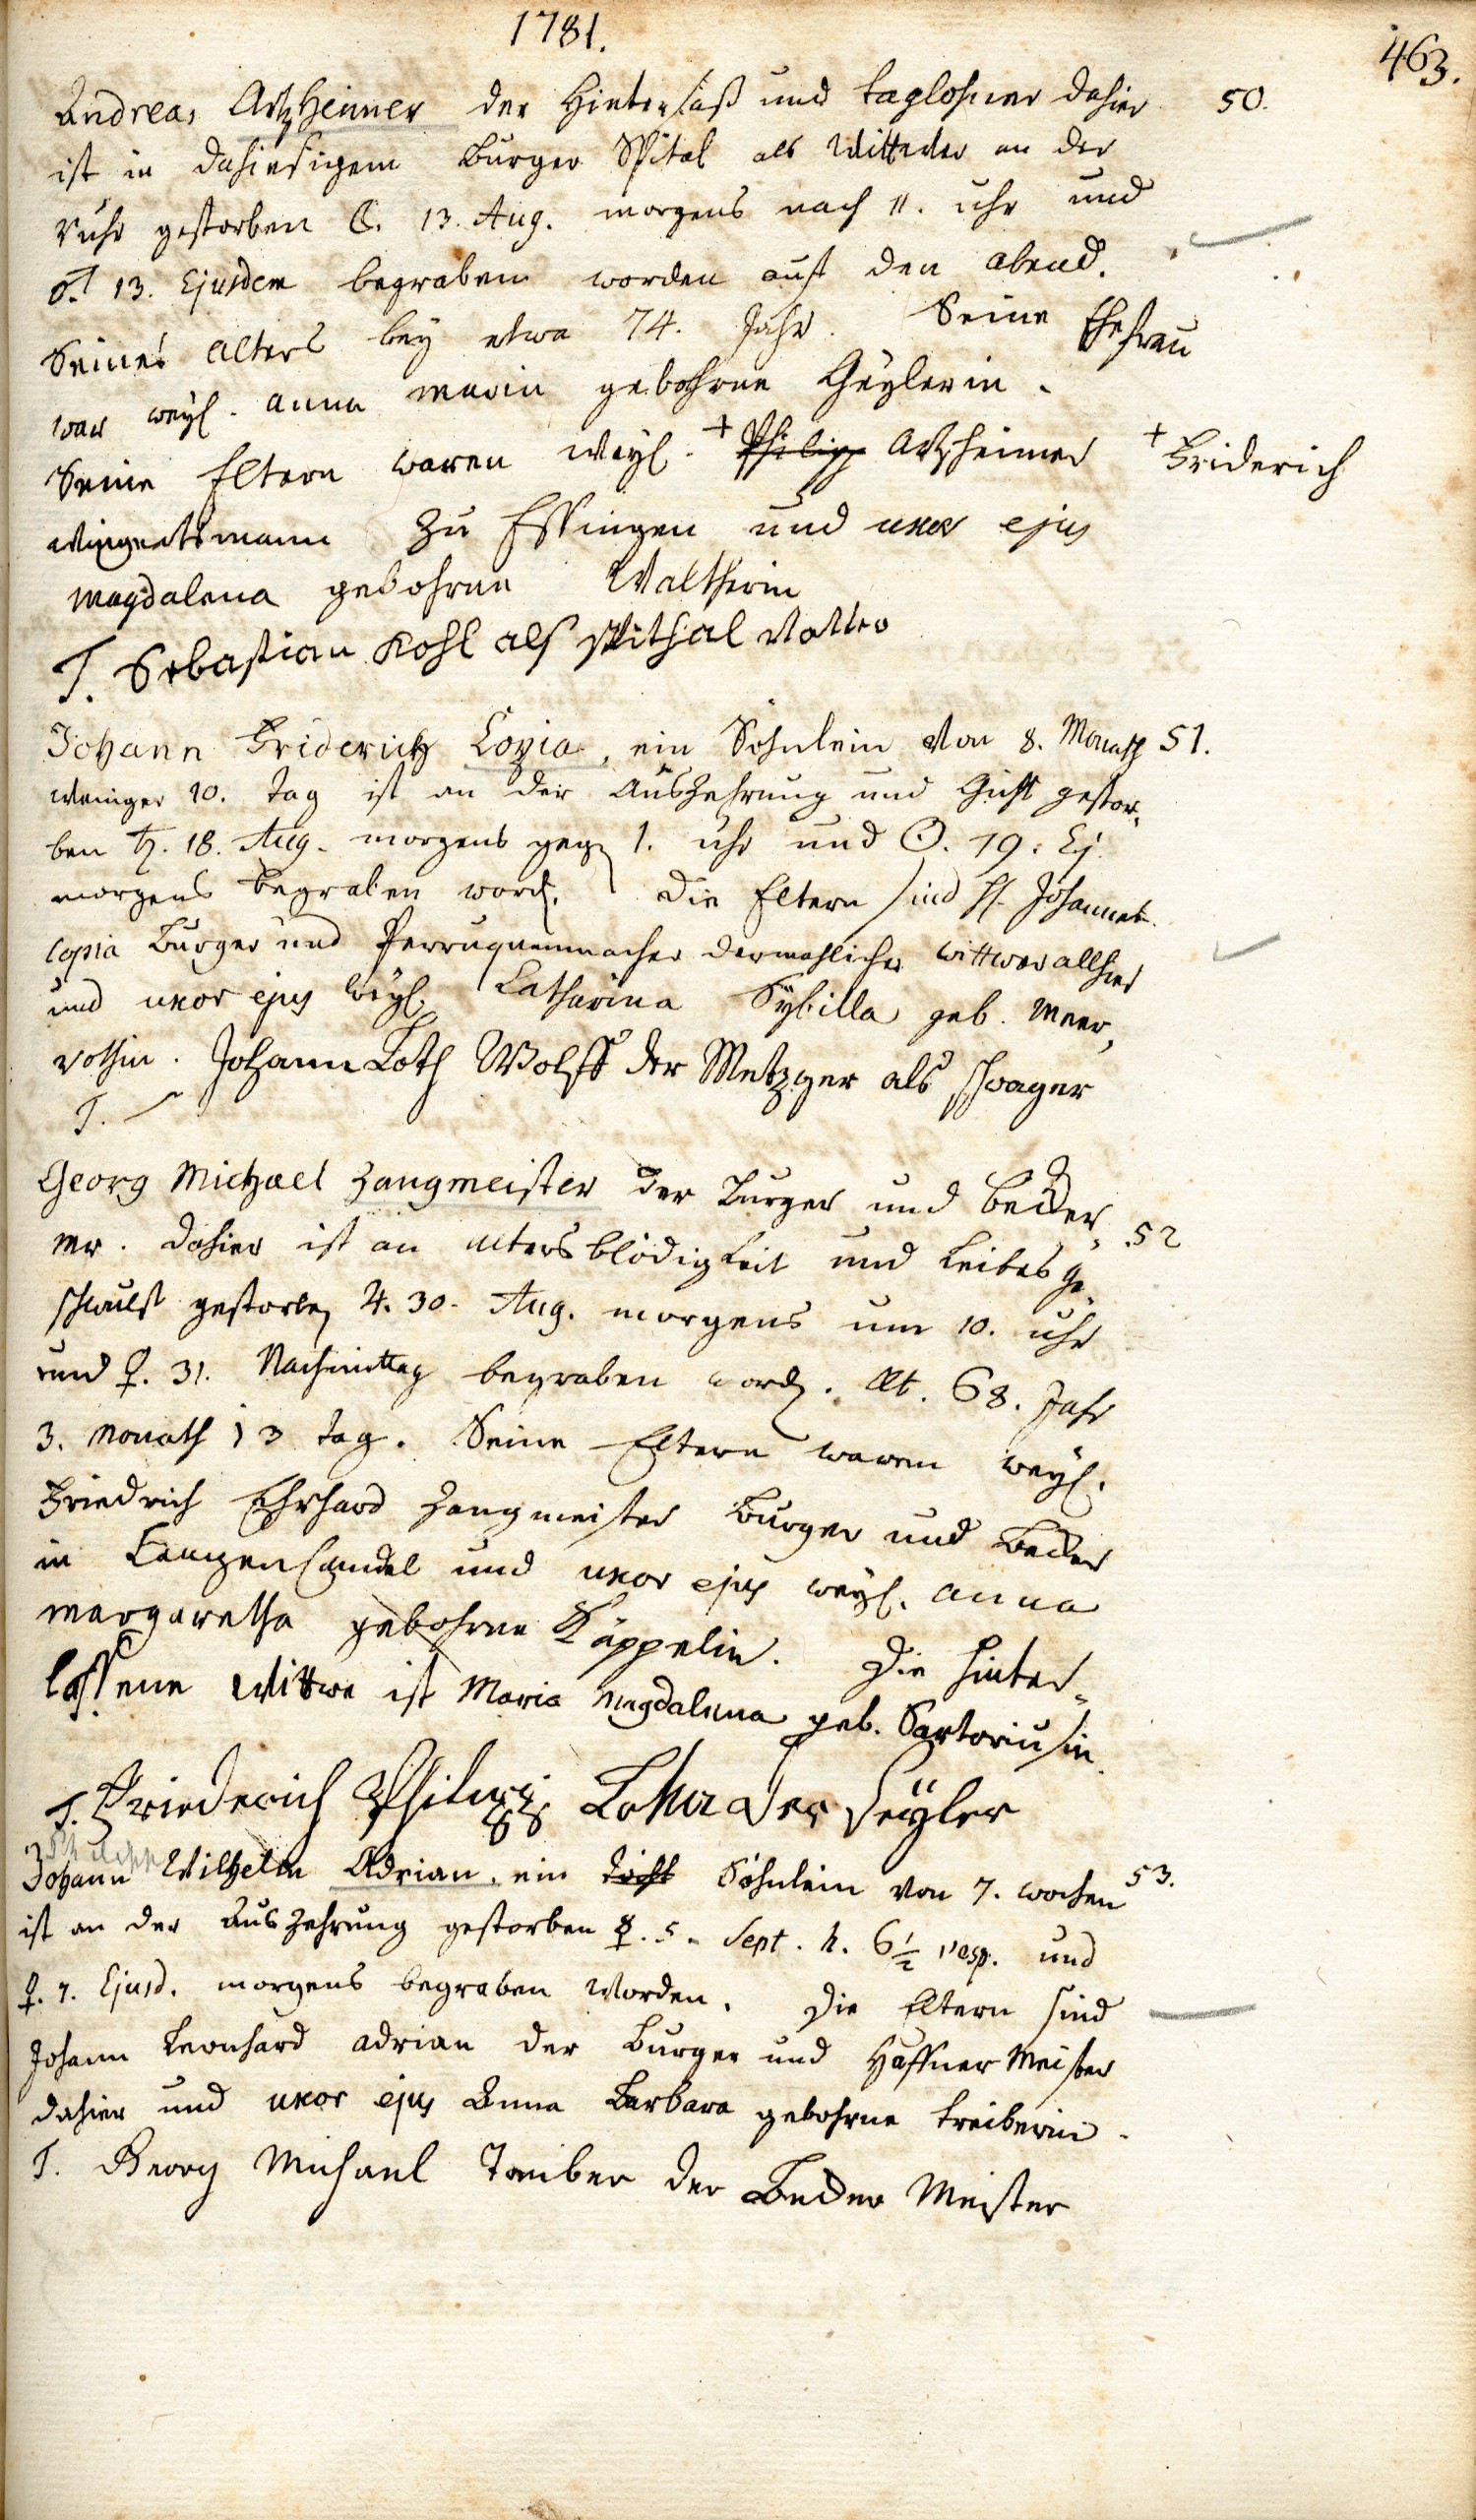 1781.
463.
Andreas Artzheimer der Hintersaß und taglohner dahier 50.
ist in dahiesigem Burger Spital als Wittwer an der
Ruhr gestorben ☾. 13. Aug. morgens nach 11. uhr und
13. Ejusdem begraben worden auf den abend.
Seines alters bey etwa 74. Jahr. Seine Ehefrau
war weyl. anna maria gebohrne Geylerin.
Seine Eltern waren weyl. + Philipp Artzheimer + Friderich
Wingertsmann zu Essingen und uxor ejus
Magdalena gebohrne Waltherin
T. Sebastian Kohl als Spithal Vatter
Johann Friderich Copia, ein Söhnlein von 8. Monath 51.
weniger 10. tag ist an der Auszehrung und Gicht gestor-
ben ♄. 18. Aug. morgens geg. 1. uhr und ☉. 19. Ej.
morgens begraben word. Die Eltern sind H. Johannes
Copia Burger und Perruquenmacher dermahliger wittwer allhier
und uxor ejus weyl. Catharina Sybilla geb. Meer-
rothin. Johann Loth Wolff der Metzger als schwager
T.
Georg Michael Zangmeister der Burger und Becker- 52
mr. dahier ist an altersblödigkeit und Leibes Ge-
schwulst gestorben ♃. 30. Aug. morgens um 10. uhr
und ♀. 31. Nachmittag begraben word. Alt. 68. Jahr
3. Monath 13 tag. Seine Eltern waren weyl.
Friedrich Ehrhard Zangmeister Burger und Becker
in Langenkandel und uxor ejus weyl. anna
margaretha gebohrne Käppelin. Die hinter-
lassene Wittwe ist Maria Magdalena geb. Sartoriusin.
T. Friederich Philipp Lohr der Seyler
Johann Wilhelm Adrian, ein Söhnlein von 7. wochen 53.
ist an der Auszehrung gestorben ☿. 5. Sept. h. 6½ vesp. und
♀. 7. Ejusd. morgens begraben worden. Die Eltern sind
Johann Leonhard Adrian der Burger und Haffner Meister
dahier und uxor ejus Anna Barbara gebohrne Treiberin.
T. Georg Michael Treiber der Becker Meister